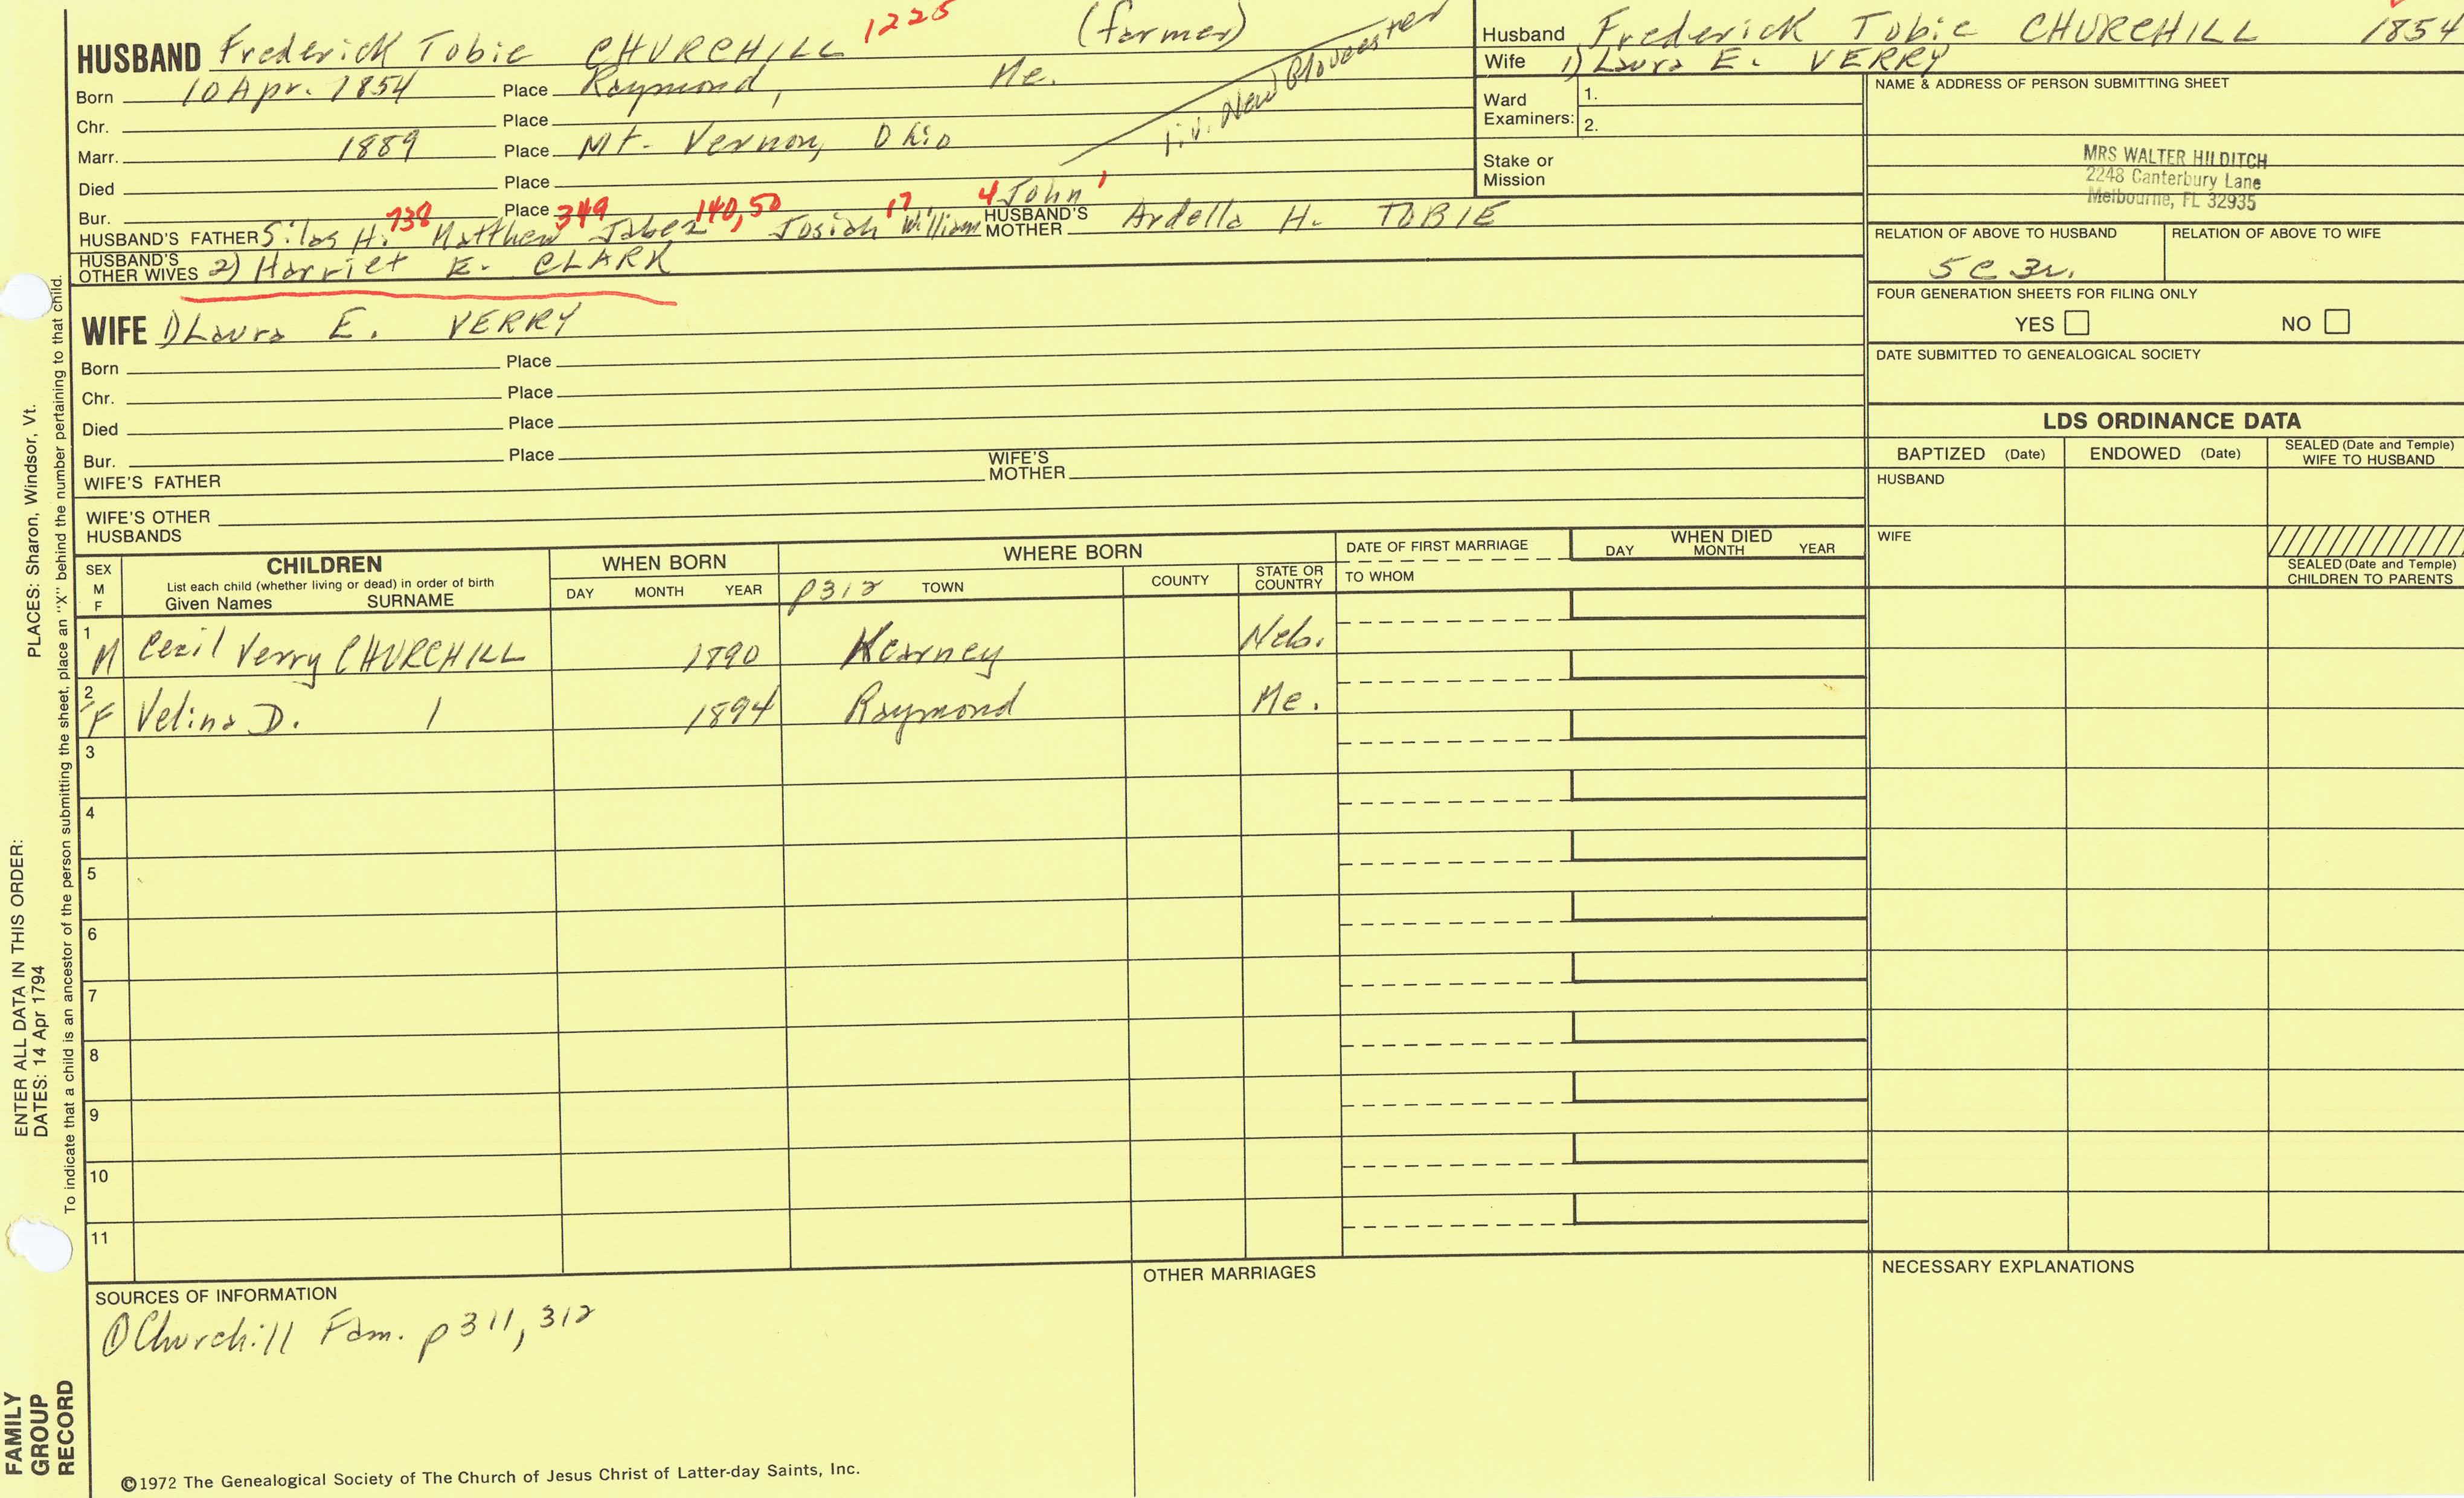 HUSBAND Frederick Tobie CHURCHILL 1225 (farmer)
Born 10 Apr. 1854 Place Raymond, Me.
Chr. Place
liv. New Gloucester
Marr. 1889 Place Mt. Vernon, Ohio
Died Place
Bur. Place
HUSBAND'S FATHER Silas H. 738 Matthew 349 Jabez 140,50 Josiah 17 William 4 John 1 HUSBAND'S MOTHER Ardella H. TOBIE
HUSBAND'S OTHER WIVES 2) Harriet E. CLARK
WIFE 1) Laura E. VERRY
Born Place
Chr. Place
Died Place
Bur. Place
WIFE'S FATHER WIFE'S MOTHER
WIFE'S OTHER HUSBANDS
Husband Frederick Tobie CHURCHILL 1854
Wife 1) Laura E. VERRY
Ward Examiners: 1.
2.
Stake or Mission
NAME & ADDRESS OF PERSON SUBMITTING SHEET
MRS WALTER HILDITCH
2248 Canterbury Lane
Melbourne, FL 32935
RELATION OF ABOVE TO HUSBAND RELATION OF ABOVE TO WIFE
5 C 3r.
FOUR GENERATION SHEETS FOR FILING ONLY
YES NO
DATE SUBMITTED TO GENEALOGICAL SOCIETY
LDS ORDINANCE DATA
BAPTIZED (Date) ENDOWED (Date) SEALED (Date and Temple) WIFE TO HUSBAND
HUSBAND
WIFE
SEALED (Date and Temple) CHILDREN TO PARENTS
SEX M F CHILDREN WHEN BORN WHERE BORN DATE OF FIRST MARRIAGE WHEN DIED
List each child (whether living or dead) in order of birth
Given Names SURNAME DAY MONTH YEAR p312 TOWN COUNTY STATE OR COUNTRY TO WHOM DAY MONTH YEAR
1 M Cecil Verry CHURCHILL 1890 Kearney Neb.
2 F Velina D. 1894 Raymond Me.
3
4
5
6
7
8
9
10
11
SOURCES OF INFORMATION
① Churchill Fam. p 311, 312
OTHER MARRIAGES
NECESSARY EXPLANATIONS
©1972 The Genealogical Society of The Church of Jesus Christ of Latter-day Saints, Inc.
FAMILY GROUP RECORD
ENTER ALL DATA IN THIS ORDER:
DATES: 14 Apr 1794
PLACES: Sharon, Windsor, Vt.
To indicate that a child is an ancestor of the person submitting the sheet, place an "X" behind the number pertaining to that child.